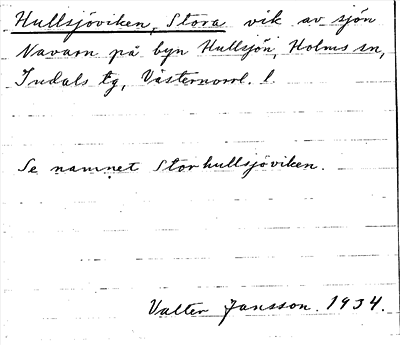 Hullsjöviken, Stora vik av sjön
Navarn på byn Hullsjön, Holms sn,
Indals tg, Västernorrl. l.
Se namnet Storhullsjöviken.
Valter Jansson. 1934.